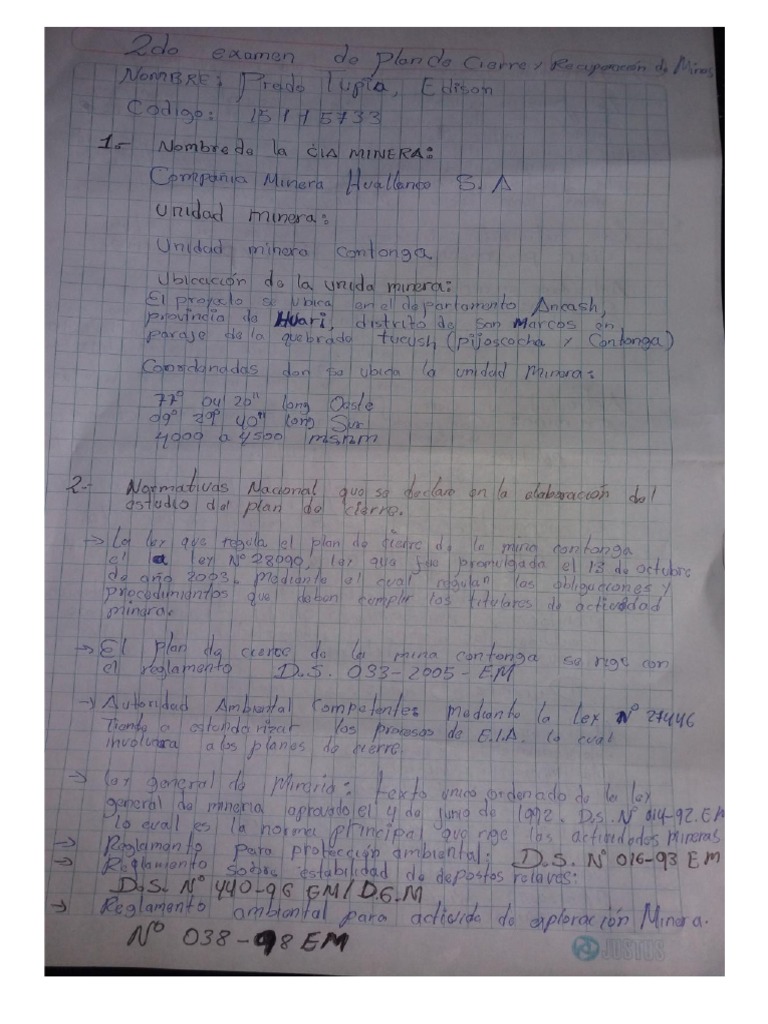 2do examen de plan de Cierre y Recuperación de Minas
NOMBRE: Prado Lupia, Edison
Codigo: 15115733
1.- Nombre de la CIA MINERA:
Compañia Minera Huallanca S.A
unidad minera:
Unidad minera contonga
Ubicación de la unida minera:
El proyecto se ubica en el departamento Ancash,
provincia de Huari, distrito de San Marcos en
paraje de la quebrada tucush (pijoscocha y Contonga)
Coordenadas don se ubica la unidad Minera:
77° 04' 20" long Oeste
09° 29° 40" long Sur
4000 a 4500 msnm
2.- Normativas Nacional que se declaro en la elaboración del
estudio del plan de cierre.
→ La ley que regula el plan de cierre de la mina contonga
el a ley N° 28090, ley que fue promulgada el 13 de octubre
de año 2003. mediante el cual regulan las obligaciones y
procedimientos que deben cumplir los titulares de actividad
minera.
→ El plan de cierre de la mina contonga se rige con
el reglamento D.S. 033-2005-EM
→ Autoridad Ambiental Competente: mediante la Ley N° 27446
Tiende a estandarizar los procesos de E.I.A. lo cual
involucra a los planes de cierre.
→ Ley general de Mineria: texto unico ordenado de la ley
general de mineria aprovado el 4 de junio de 1992. D.S. N° 014-92.EM
lo cual es la norma principal que rige las actividades mineras
→ Reglamento para protección ambiental: D.S. N° 016-93 EM
→ Reglamiento sobre estabilidad de depostos relaves:
D.S. N° 440-96 EM/D.G.M
→ Reglamento ambiental para activida de exploración Minera.
N° 038-98 EM
JUSTUS